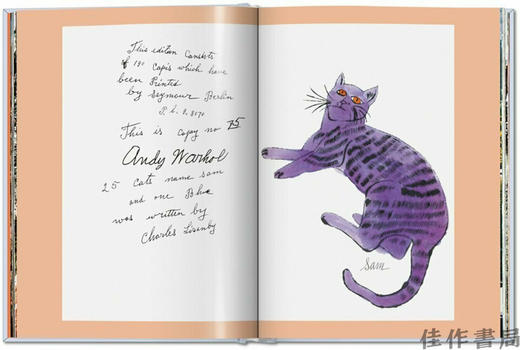 This edition Consists
of 190 Capis which have
been Printed
by Seymour Berlin
This is copy no 75
Andy Warhol
25 Cats name sam
and one Blue
was written by
Charles Lisanby
Sam
佳作書局